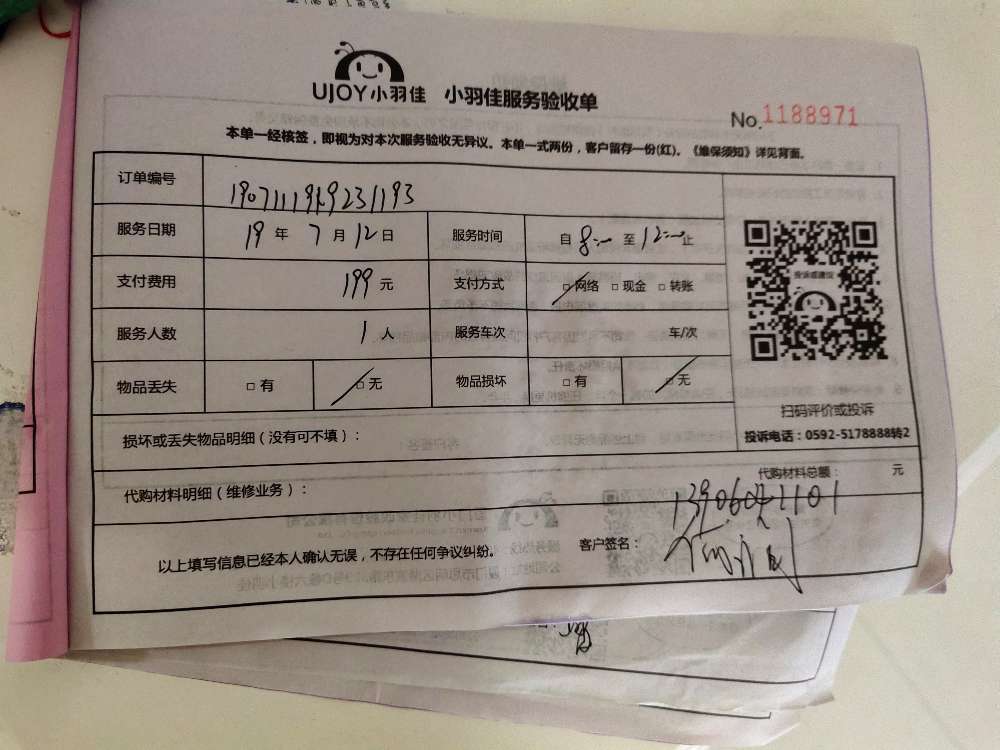 UJOY小羽佳 小羽佳服务验收单
No.1188971
本单一经核签，即视为对本次服务验收无异议。本单一式两份，客户留存一份(红)。《维保须知》详见背面。
订单编号
服务日期 19 年 7 月 12 日 服务时间 自 8:00 至 12:00 止
支付费用 199 元 支付方式 □网络 □现金 □转账
服务人数 1 人 服务车次 车/次
物品丢失 □有 □无 物品损坏 □有 □无
投诉或建议
扫码评价或投诉
投诉电话：0592-5178888转2
损坏或丢失物品明细（没有可不填）：
代购材料明细（维修业务）： 代购材料总额： 元
以上填写信息已经本人确认无误，不存在任何争议纠纷。 客户签名：